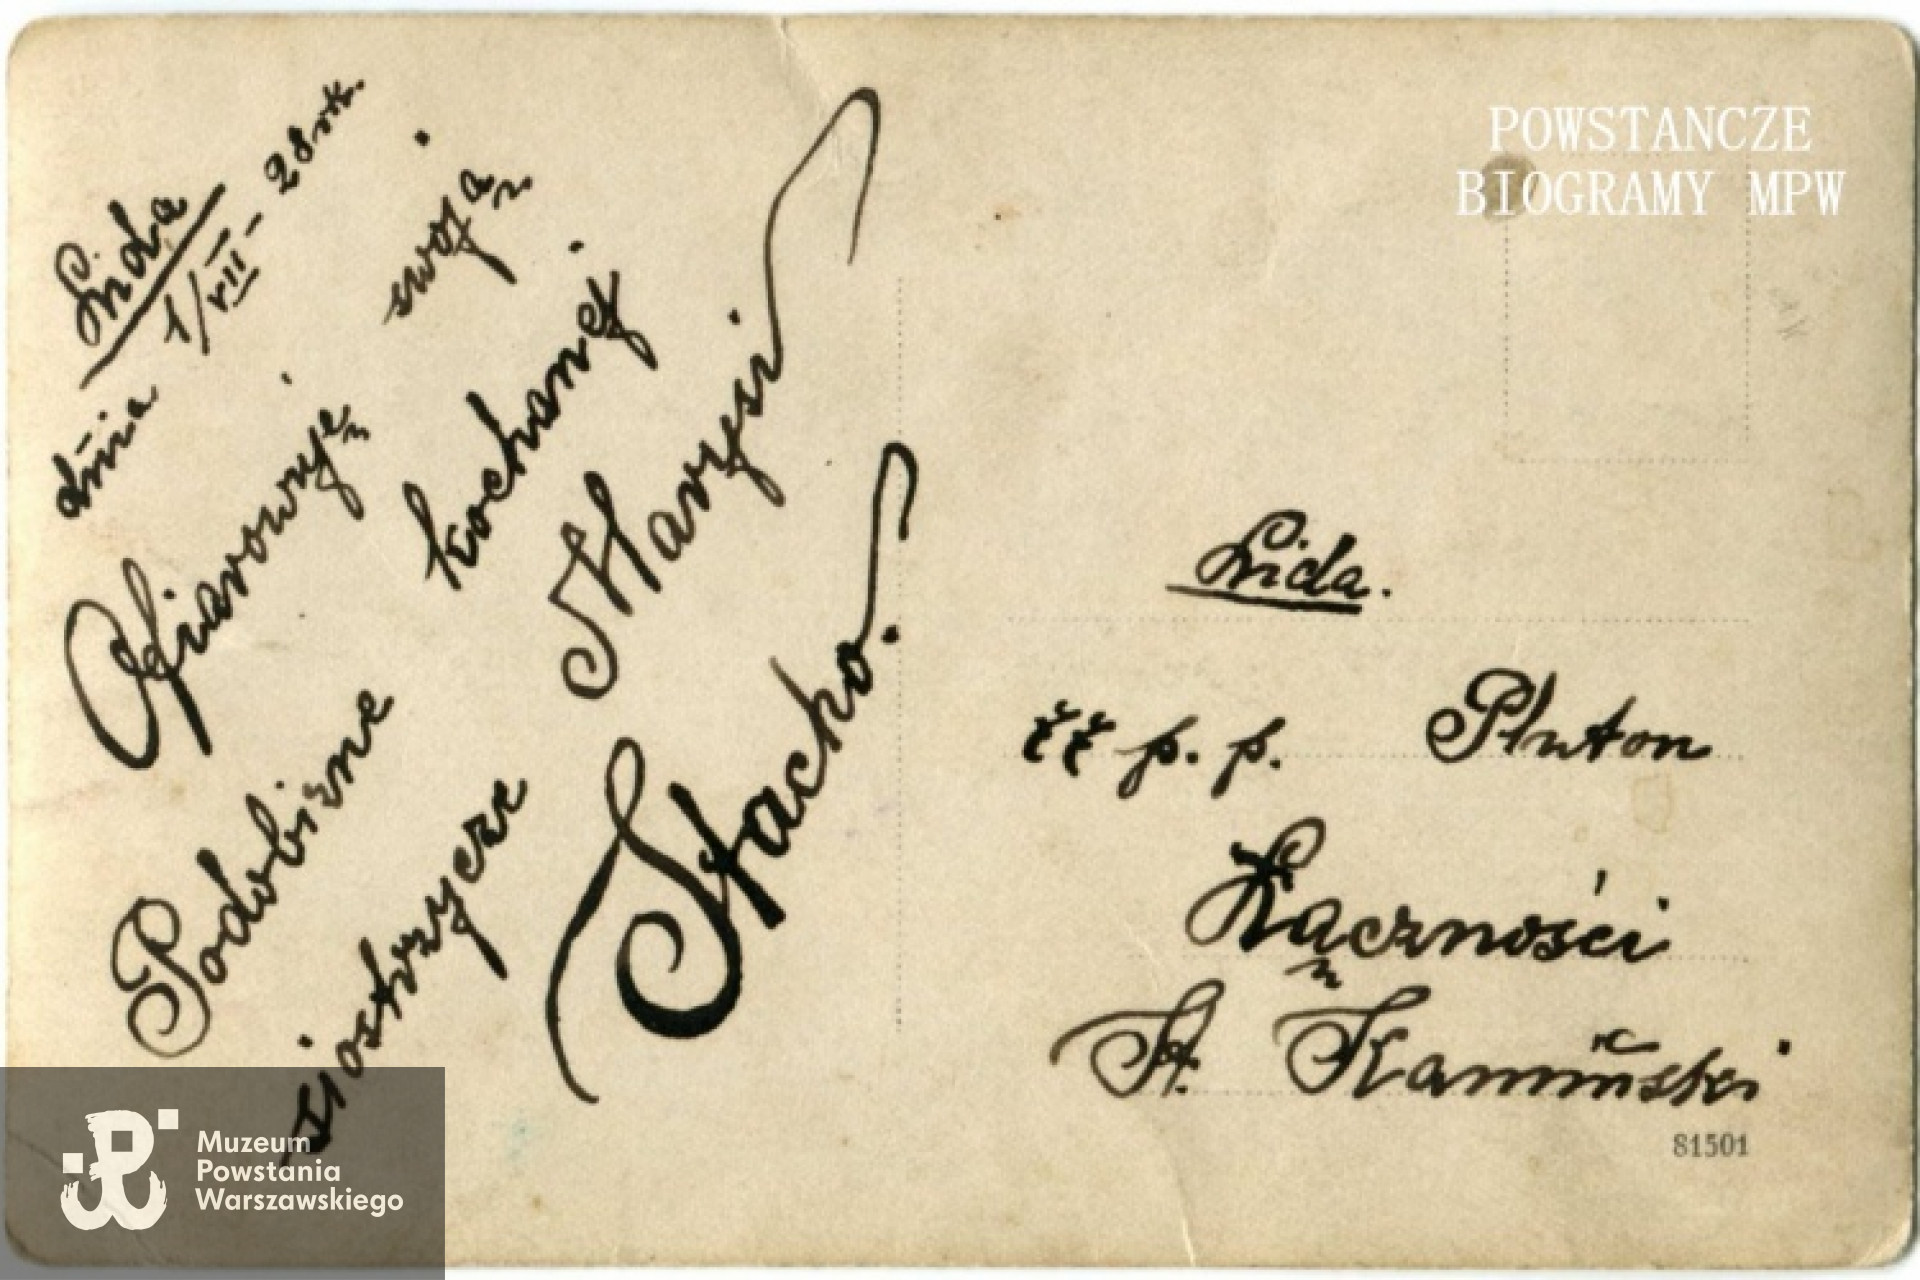 Lida
dnia 1/VII-28 rk.
Ofiarowyję swoją
Podobiznę kochanej
siostrzyczce Marysi
Stacho.
Lida.
77 p. p. Pluton
Łączności
St. Kamiński
81501
POWSTANCZE
BIOGRAMY MPW
Muzeum
Powstania
Warszawskiego